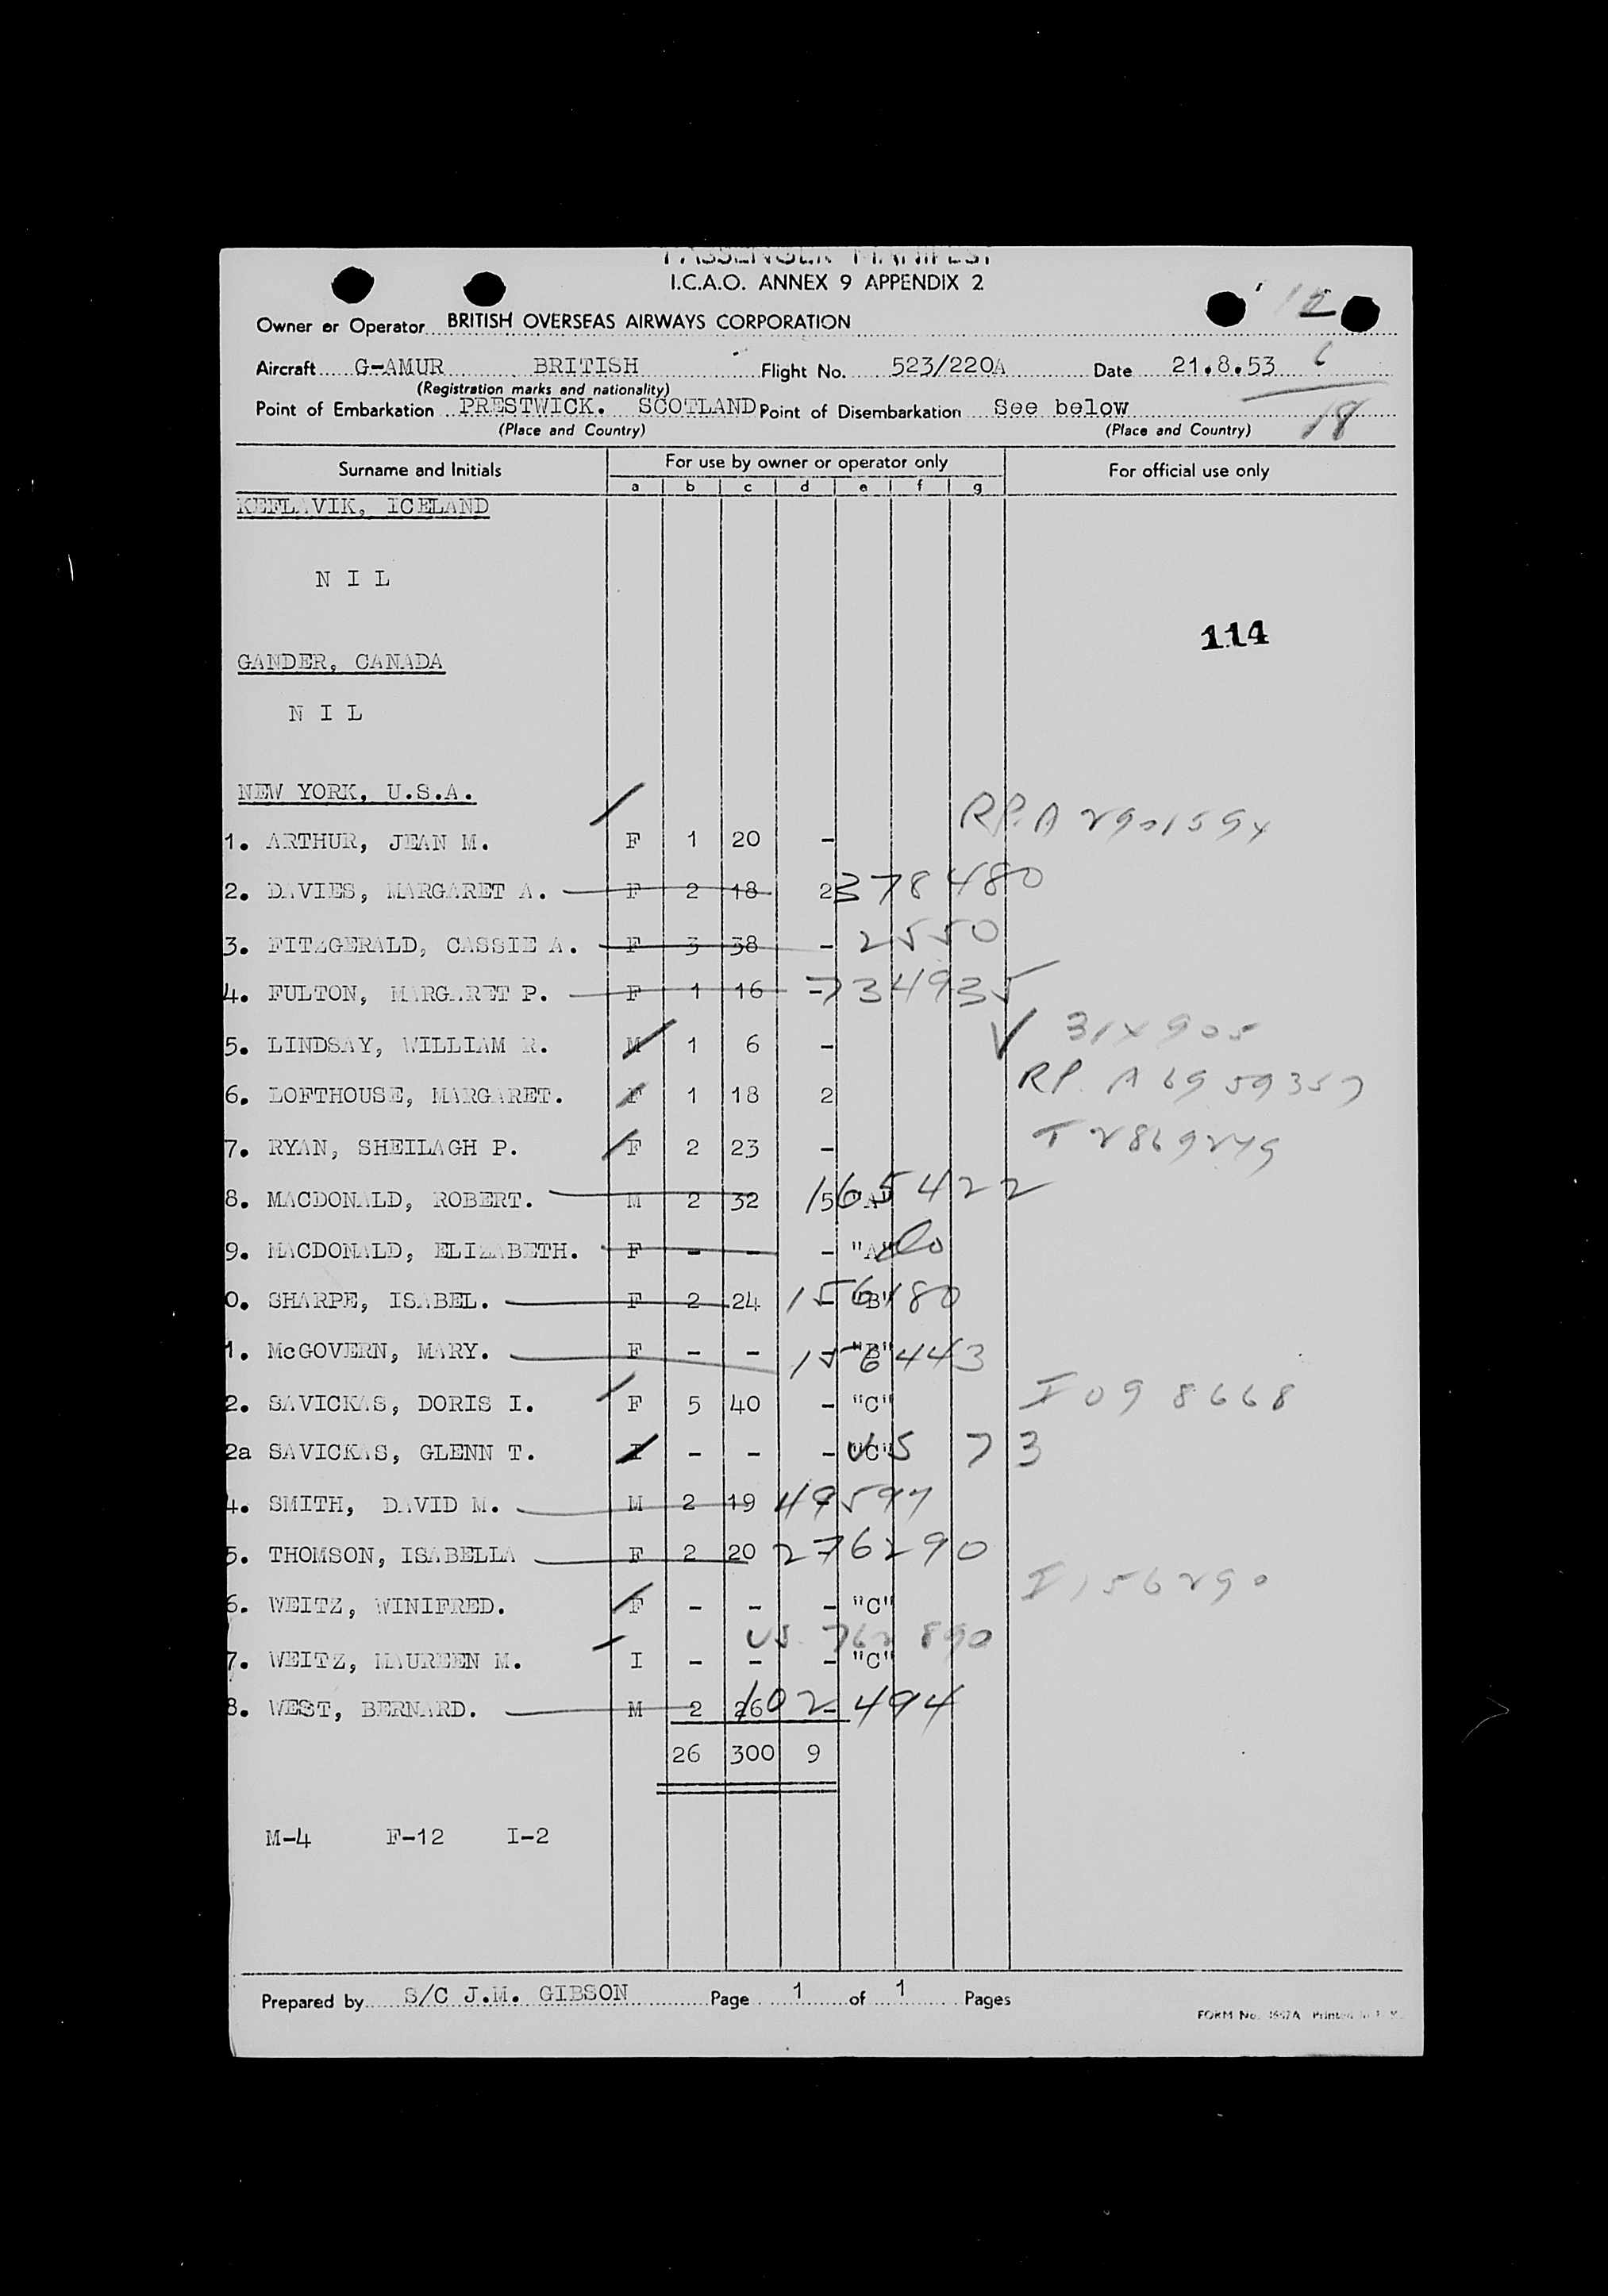 PASSENGER MANIFEST
I.C.A.O. ANNEX 9 APPENDIX 2
12
Owner or Operator BRITISH OVERSEAS AIRWAYS CORPORATION
Aircraft G-AMUR BRITISH Flight No. 523/220A Date 21.8.53 6
(Registration marks and nationality)
Point of Embarkation PRESTWICK. SCOTLAND Point of Disembarkation See below
(Place and Country) (Place and Country) 18
Surname and Initials For use by owner or operator only For official use only
a b c d e f g
KEFLAVIK, ICELAND
N I L
114
GANDER, CANADA
N I L
NEW YORK, U.S.A.
RP. A 2901594
1. ARTHUR, JEAN M. F 1 20 -
2. DAVIES, MARGARET A. F 2 18 2 378480
3. FITZGERALD, CASSIE A. F 3 38 - 2550
4. FULTON, MARGARET P. F 1 16 - 734935
5. LINDSAY, WILLIAM R. M 1 6 - V 314905
6. LOFTHOUSE, MARGARET. F 1 18 2 RP. A 6959357
7. RYAN, SHEILAGH P. F 2 23 - T 2869249
8. MACDONALD, ROBERT. M 2 32 5 "A" 165422
9. MACDONALD, ELIZABETH. F - - - "A" Do
0. SHARPE, ISABEL. F 2 24 - "B" 156180
1. McGOVERN, MARY. F - - - "B" 156443
2. SAVICKAS, DORIS I. F 5 40 - "C" I 098668
2a SAVICKAS, GLENN T. I - - - "C" US 73
4. SMITH, DAVID M. M 2 19 - 49597
5. THOMSON, ISABELLA F 2 20 - 276290
6. WEITZ, WINIFRED. F - - - "C" I 156290
US. 762890
7. WEITZ, MAUREEN M. I - - - "C"
8. WEST, BERNARD. M 2 26 - 102494
26 300 9
M-4 F-12 I-2
Prepared by S/C J.M. GIBSON Page 1 of 1 Pages
FORM No.